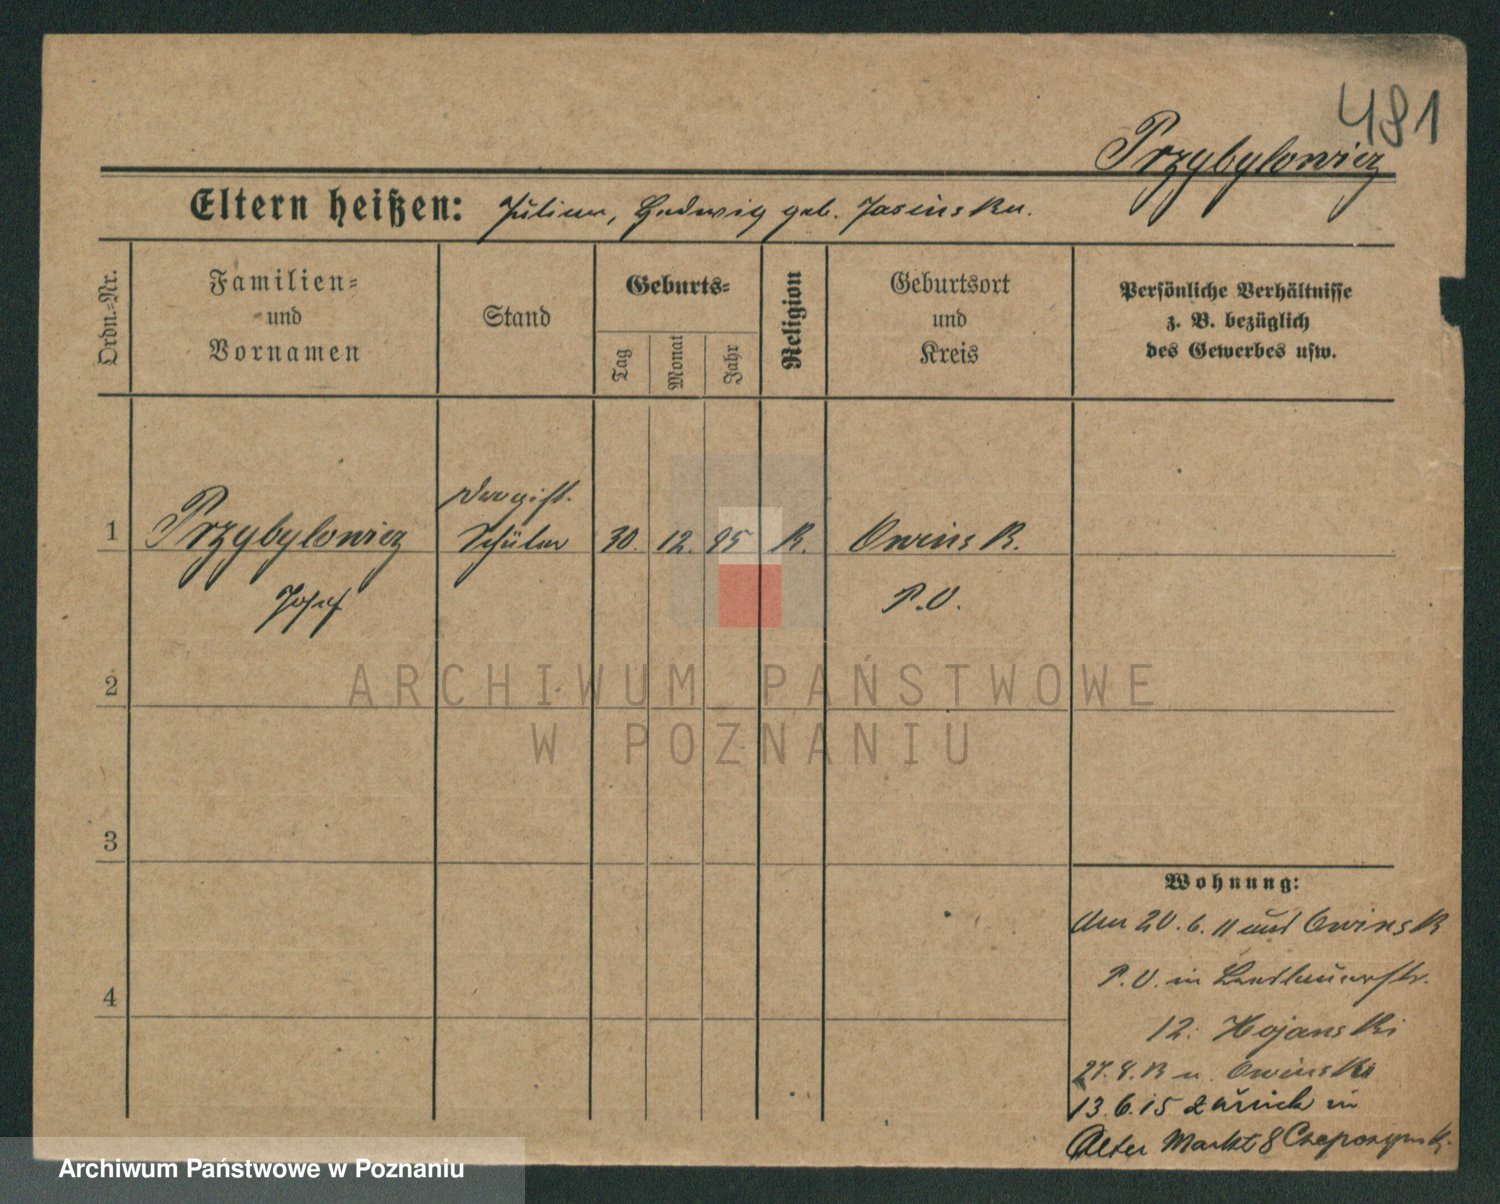 481
Przybylowicz
Eltern heißen: Julian, Hedwig geb. Jasinska.
Ordn.-Nr.
Familien=
und
Vornamen
Stand
Geburts=
Tag
Monat
Jahr
Religion
Geburtsort
und
Kreis
Persönliche Verhältnisse
z. B. bezüglich
des Gewerbes usw.
1
Przybylowicz
Josef
Drogist.
Schüler
30. 12. 95
K.
Owinsk.
P.O.
2
3
4
Wohnung:
Am 20.6.11 aus Owinsk
P.O. in
12.
Owinsk
13.6.15 zurück in
Alter Markt 8
ARCHIWUM PAŃSTWOWE
W POZNANIU
Archiwum Państwowe w Poznaniu